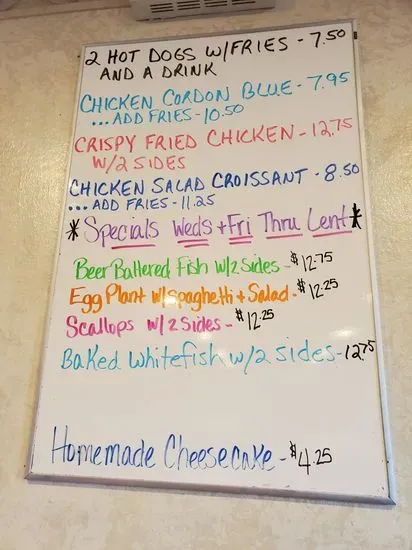 2 HOT DOGS W/FRIES - 7.50
AND A DRINK
CHICKEN CORDON BLUE - 7.95
... ADD FRIES - 10.50
CRISPY FRIED CHICKEN - 12.75
W/2 SIDES
CHICKEN SALAD CROISSANT - 8.50
... ADD FRIES - 11.25
*Specials Weds + Fri Thru Lent*
Beer Battered Fish W/2 Sides - $12.75
Egg Plant w/spaghetti + Salad - $12.25
Scallops W/2 Sides - $12.25
Baked Whitefish w/2 sides - 12.75
Homemade Cheesecake - $4.25